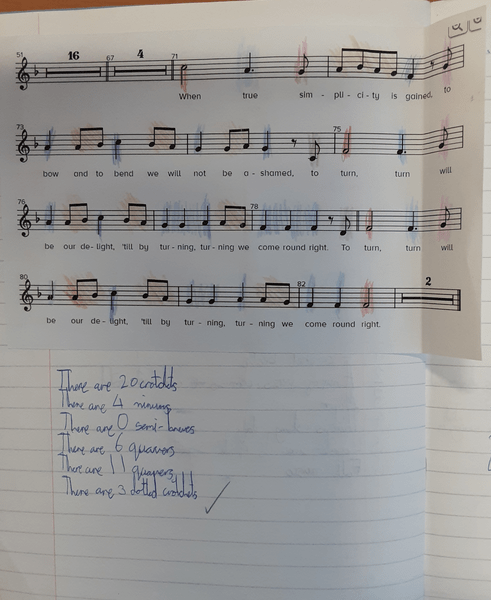 51 16 67 4 71
When true sim - pli - ci - ty is gained, to
73 75
bow and to bend we will not be a - shamed, to turn, turn will
76 78
be our de - light, 'till by tur - ning, tur - ning we come round right. To turn, turn will
80 82 2
be our de - light, 'till by tur - ning, tur - ning we come round right.
There are 20 crotchets
There are 4 minims
There are 0 semi-breves
There are 6 quavers
There are 11 quavers
There are 3 dotted crotchets